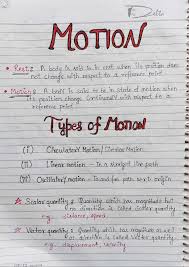 Delta
MOTION
• Rest : A body is said to be in rest when its position does
not change with respect to a reference point
• Motion : A body is said to be in state of motion when
its position change continuously with respect to a
reference point
Types of MOTION
(I) Circulatory Motion / Circular Motion
(II) Linear motion - In a straight line path
(III) Oscillatory motion - To and fro path w.r.t origin
* Scalar quantity : Quantity which has magnitude but
no direction is called scalar quantity
e.g. distance, speed
* Vector quantity : Quantity which has magnitude as well
as direction is called Vector quantity
e.g. displacement, velocity